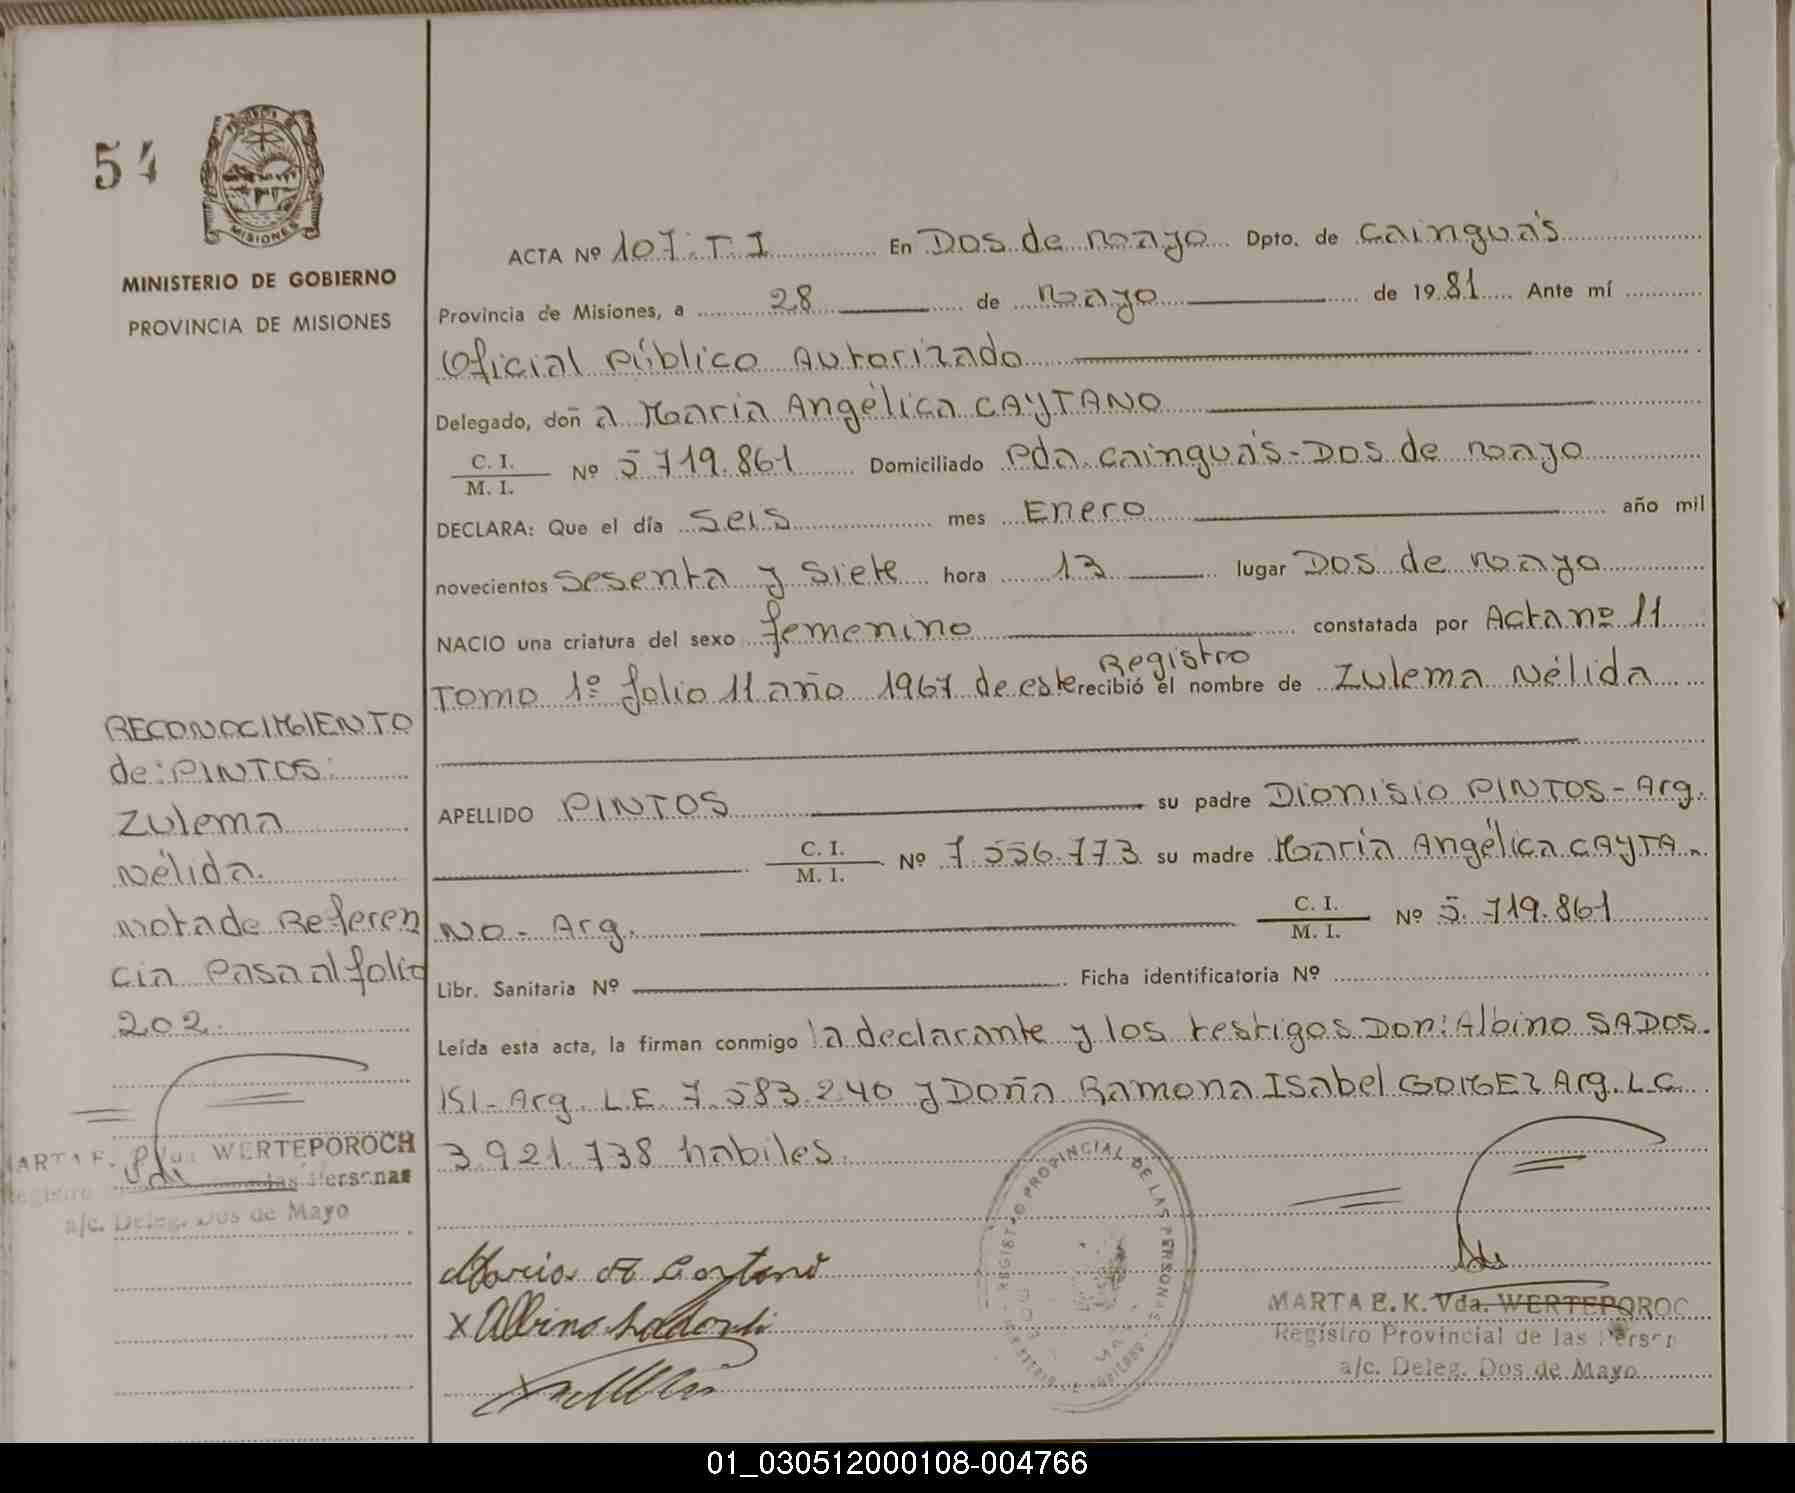 54
MISIONES
MINISTERIO DE GOBIERNO
PROVINCIA DE MISIONES
ACTA Nº 107. T. I En Dos de mayo Dpto. de Cainguás
Provincia de Misiones, a 28 de mayo de 1981 Ante mí
Oficial Público Autorizado
Delegado, doña María Angélica CAYTANO
C. I. / M. I. Nº 5.719.861 Domiciliado Pda. Cainguás-Dos de mayo
DECLARA: Que el día seis mes Enero año mil
novecientos sesenta y siete hora 13 lugar Dos de mayo
NACIO una criatura del sexo femenino constatada por Acta nº 11
Registro
TOMO 1º folio 11 año 1967 de este recibió el nombre de Zulema Nélida
APELLIDO PINTOS su padre Dionisio PINTOS - Arg.
C. I. / M. I. Nº 7.556.773 su madre María Angélica CAYTA-
NO - Arg. C. I. / M. I. Nº 5.719.861
Libr. Sanitaria Nº Ficha identificatoria Nº
Leída esta acta, la firman conmigo la declarante y los testigos Don: Albino SADOS.
ISI - Arg. L.E. 7.583.240 y Doña Ramona Isabel GOMEZ Arg. L.C.
3.921.738 habiles.
RECONOCIMIENTO
de: PINTOS:
Zulema
Nélida.
Nota de Referen
cia Pasa al folio
202.
MARTA E. Vda. WERTEPOROCH
Registro las Personas
a/c. Deleg. Dos de Mayo
REGISTRO PROVINCIAL DE LAS PERSONAS
Maria A Caytano
x Albino Sadosti
MARTA E. K. Vda. WERTEPOROC
Registro Provincial de las Person
a/c. Deleg. Dos de Mayo
01_030512000108-004766